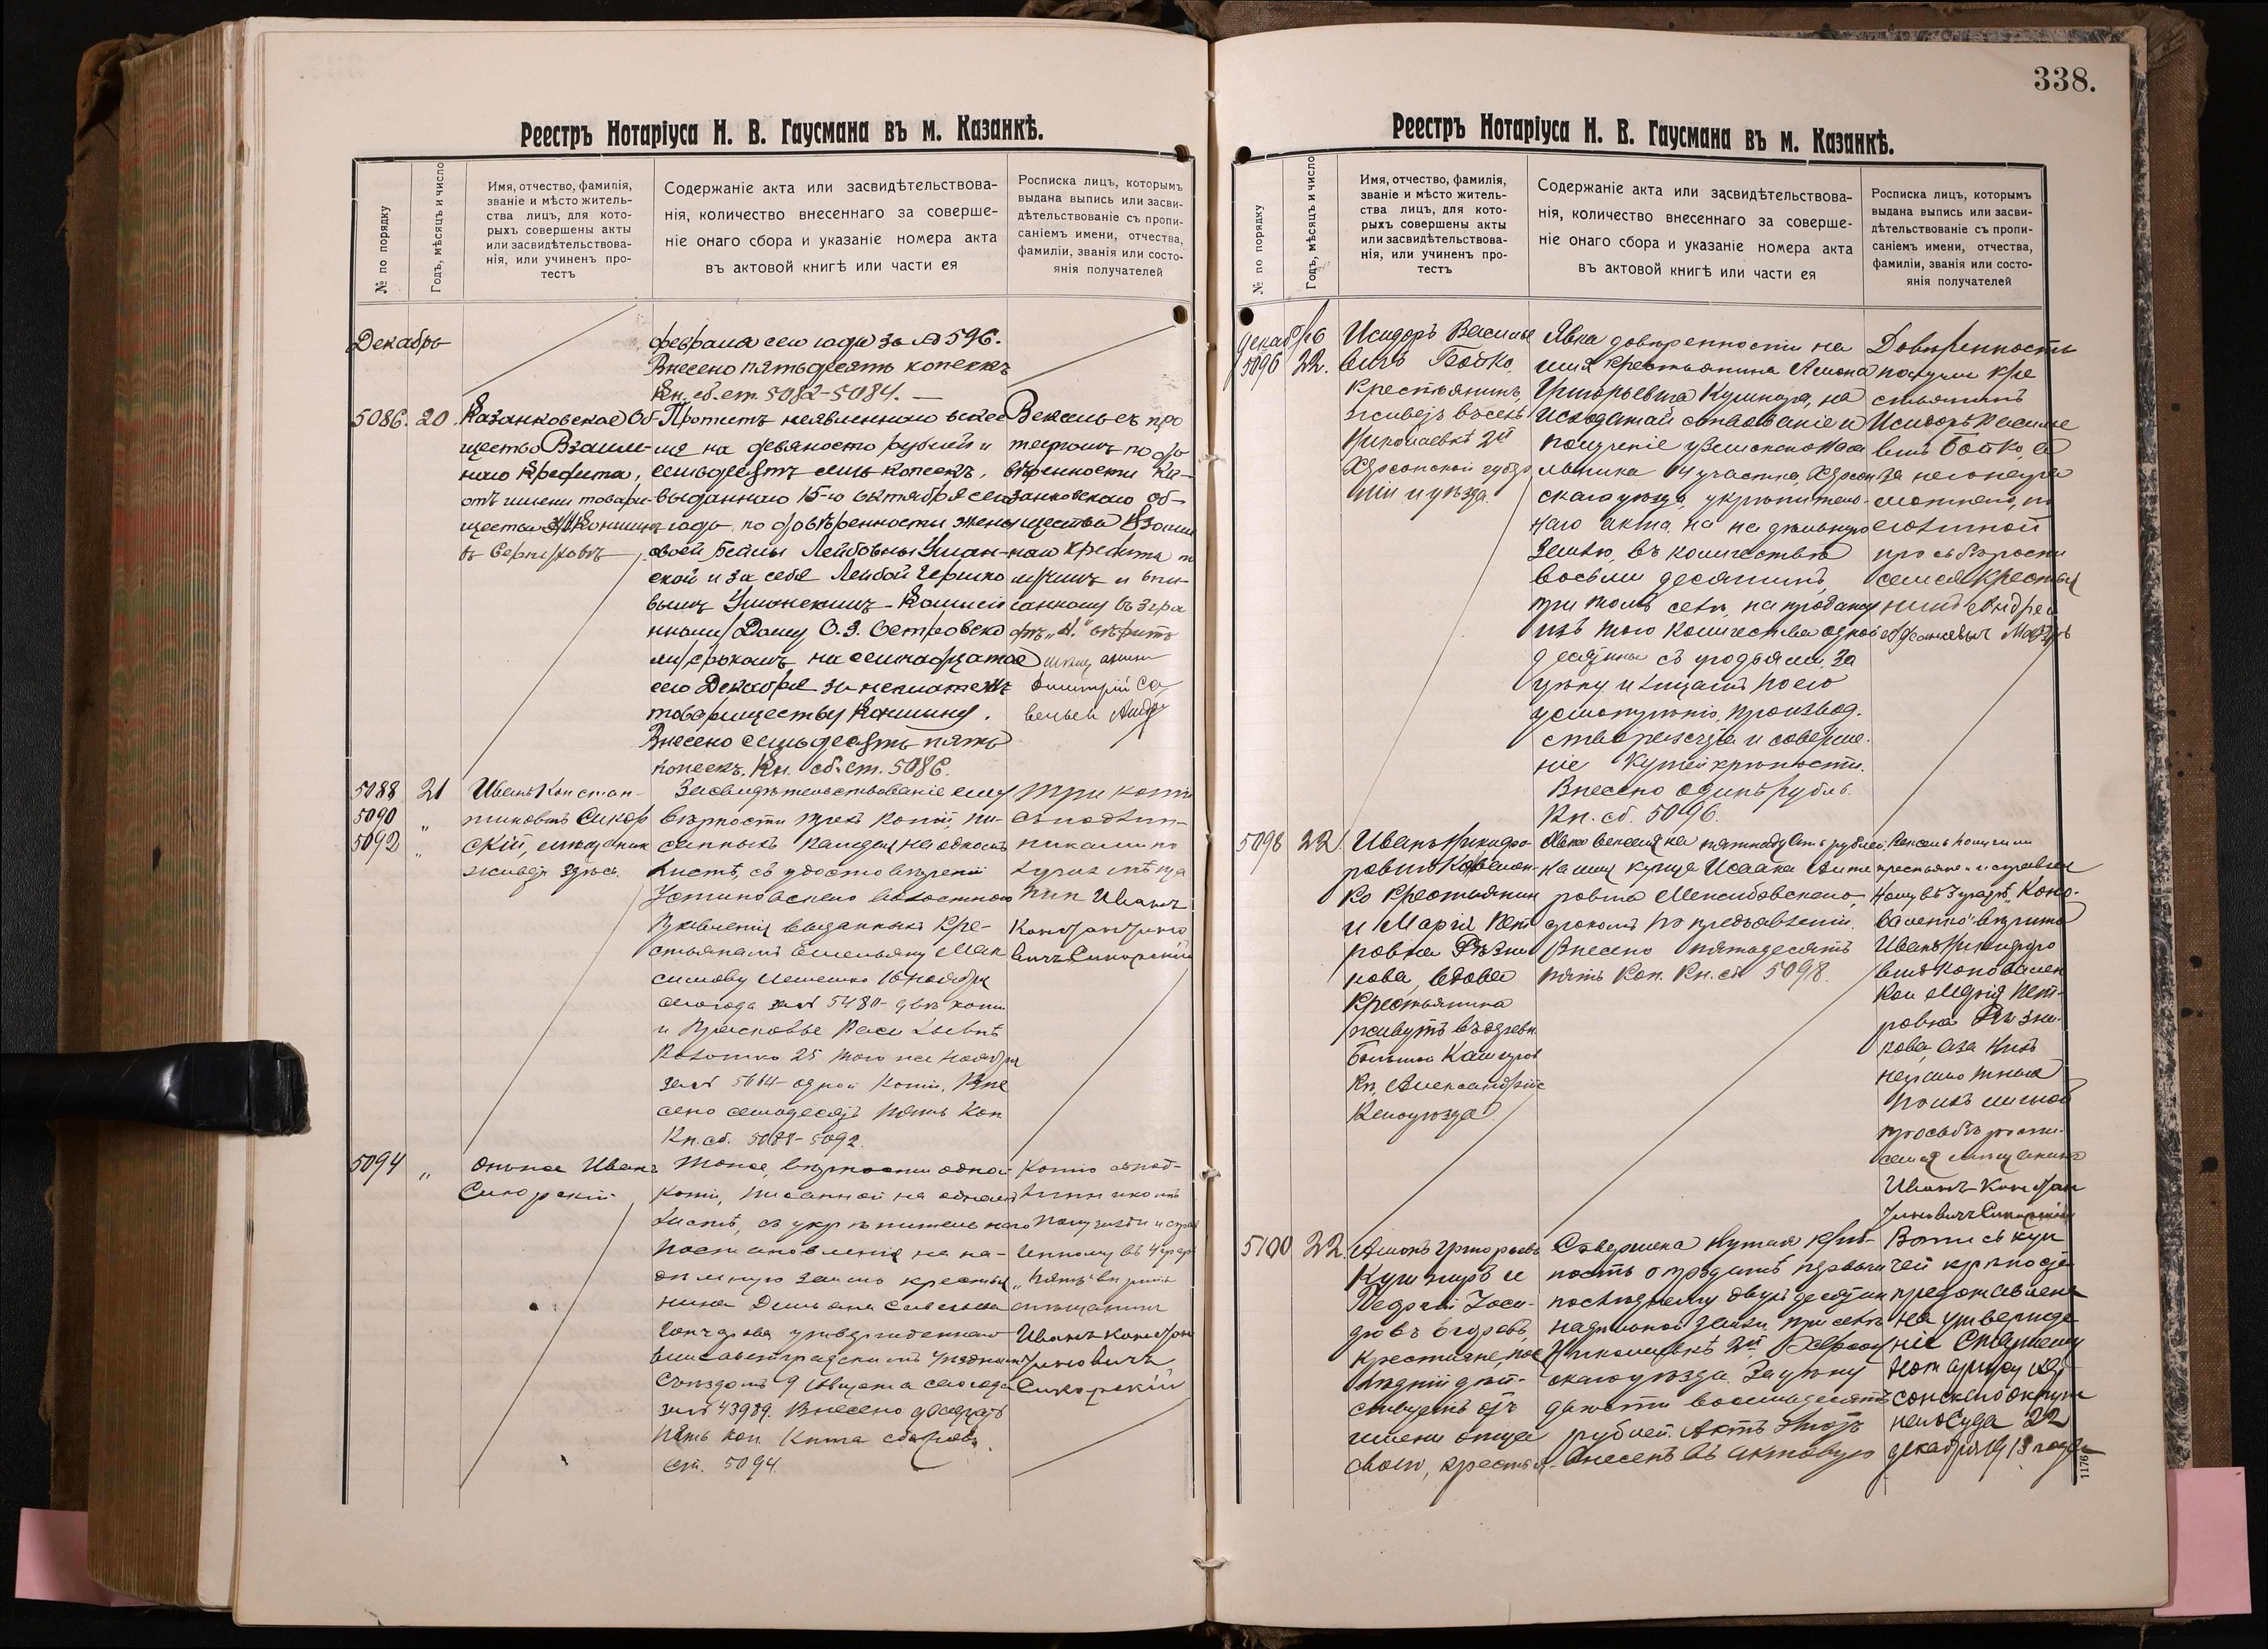 338.
Реестръ Нотаріуса Н. В. Гаусмана въ м. Казанкѣ.
№ по порядку
Годъ, мѣсяцъ и число
Имя, отчество, фамилія,
званіе и мѣсто житель-
ства лицъ, для кото-
рыхъ совершены акты
или засвидѣтельствова-
нія, или учиненъ про-
тестъ
Содержаніе акта или засвидѣтельствова-
нія, количество внесеннаго за соверше-
ніе онаго сбора и указаніе номера акта
въ актовой книгѣ или части ея
Росписка лицъ, которымъ
выдана выпись или засви-
дѣтельствованіе съ пропи-
саніемъ имени, отчества,
фамиліи, званія или состо-
янія получателей
Декабрь
февраля сего года за № 596.
Внесено пятьдесятъ копеекъ
Кн. сб. ст. 5082-5084.
5086. 20.
Казанковское Об-
щество Взаим-
наго Кредита,
отъ имени товари-
щества Коншинъ
въ Серпуховѣ
Протестъ неявленнаго вексе-
ля на девяносто рублей и
семьдесятъ семь копеекъ,
выданнаго 15-го октября сего
года, по довѣренности жены
своей Бейлы Лейбовны Уман-
ской и за себя Лейбой Гершко
вымъ Уманскимъ - Комисіо
нному Дому О. З. Островско
му, срокомъ на семнадцатое
сего Декабря за неплатежъ
товариществу Коншину.
Внесено семьдесятъ пять
копеекъ. Кн. сб. ст. 5086.
Вексель съ про
тестомъ по до
вѣренности Ка-
занковскаго Об-
щества Взаим
наго Кредита
5088 21
5090 "
5092 "
Иванъ Констан-
тиновичъ Сикор
скій, мѣщанинъ
живетъ здѣсь.
Засвидѣтельствованіе ему
вѣрности трехъ копій, пи-
санныхъ каждая на одномъ
листѣ, съ удостовѣреній
Устиновскаго волостного
Правленія выданныхъ Кре-
стьянамъ Емельяну Мак
симову 16 ноября
сего года за № 5480 - двѣ копіи
и Прасковье Васильевнѣ
25 того же ноября
за № 5614 - одной копіи. Вне
сено семьдесятъ пять коп.
Кн. сб. 5088-5092.
Три копіи
съ подлин-
никами по
лучилъ мѣща
нинъ Иванъ
Константино
вичъ Сикорскій
5094 "
Онъ же Иванъ
Сикорскій
Тоже, вѣрности одной
копіи, писанной на одномъ
листѣ, съ укрѣпительнаго
постановленія на на-
дѣльную землю крестья
нина Демьяна Савельева
Гончарова утвержденнаго
Елисаветградскимъ Уѣзднымъ
Съѣздомъ 9 Августа сего года
за № 43989. Внесено двадцать
пять коп. Книга сборовъ
ст. 5094.
Копію съ под-
линникомъ
мѣщанинъ
Иванъ Констан
тиновичъ
Сикорскій
Реестръ Нотаріуса Н. В. Гаусмана въ м. Казанкѣ.
№ по порядку
Годъ, мѣсяцъ и число
Имя, отчество, фамилія,
званіе и мѣсто житель-
ства лицъ, для кото-
рыхъ совершены акты
или засвидѣтельствова-
нія, или учиненъ про-
тестъ
Содержаніе акта или засвидѣтельствова-
нія, количество внесеннаго за соверше-
ніе онаго сбора и указаніе номера акта
въ актовой книгѣ или части ея
Росписка лицъ, которымъ
выдана выпись или засви-
дѣтельствованіе съ пропи-
саніемъ имени, отчества,
фамиліи, званія или состо-
янія получателей
Декабрь
5096 22.
Исидоръ Василье
вичъ Бойко,
крестьянинъ,
живетъ въ селѣ
Николаевкѣ 2й
Херсонской губер
ніи и уѣзда.
Явка довѣренности на
имя Крестьянина Амона
Григорьевича Кушнира, на
исходатайствованіе и
полученіе у Земскаго Нача
льника 14 участка, Херсон
скаго уѣзда, укрѣпитель-
наго акта, на надѣльную
землю, въ количествѣ
восьми десятинъ,
при томъ селѣ, на продажу
изъ того количества одной
десятины съ угодьями, за
цѣну и лицамъ по его
усмотрѣнію, производ.
ство разсчета и соверше.
ніе купчей крѣпости.
Внесено одинъ рубль.
Кн. сб. 5096.
Довѣренность
получилъ кре
стьянинъ
Исидоръ Василье
вичъ Бойко, а
за него негра
мотнаго, по
его личной
просьбѣ распи
сался Крестья
нинъ Андрей
5098 22
Иванъ Никифо-
ровичъ Коваленко-
ко Крестьянин
и Марія Пет
ровна Рѣзни
кова, вдова
Крестьянина
живутъ въ деревн.
Явка векселя на пятнадцать рублей
на имя купца Исаака
ровича Менсибовскаго,
срокомъ по предъявленіи.
Внесено пятьдесятъ
пять коп. Кн. сб. 5098.
Вексель получили
Иванъ Никифоро
вичъ Коновален
ко и Марія Пет-
ровна Рѣзни-
кова, а за нихъ
неграмотныхъ
по ихъ личной
просьбѣ распи-
сался мѣщанинъ
Иванъ Констан
тиновичъ Сикорскій
5100 22
Амонъ Григорьевъ
Кушниръ и
крестьяне, пос
лѣдній дѣй-
ствуетъ отъ
имени отца
своего, крестья-
Совершена Купчая крѣ-
пость о продажѣ первымъ
послѣднему двухъ десятин
надѣльной земли при селѣ
Николаевкѣ 2й Херсон
скаго уѣзда. За цѣну
двѣсти восемьдесятъ
рублей. Актъ этотъ
внесенъ въ актовую
Выпись куп
чей крѣпости
представлена
на утвержде
ніе Старшему
Нотаріусу Хер
сонскаго Окруж
наго Суда 22
декабря 1913 года
1176